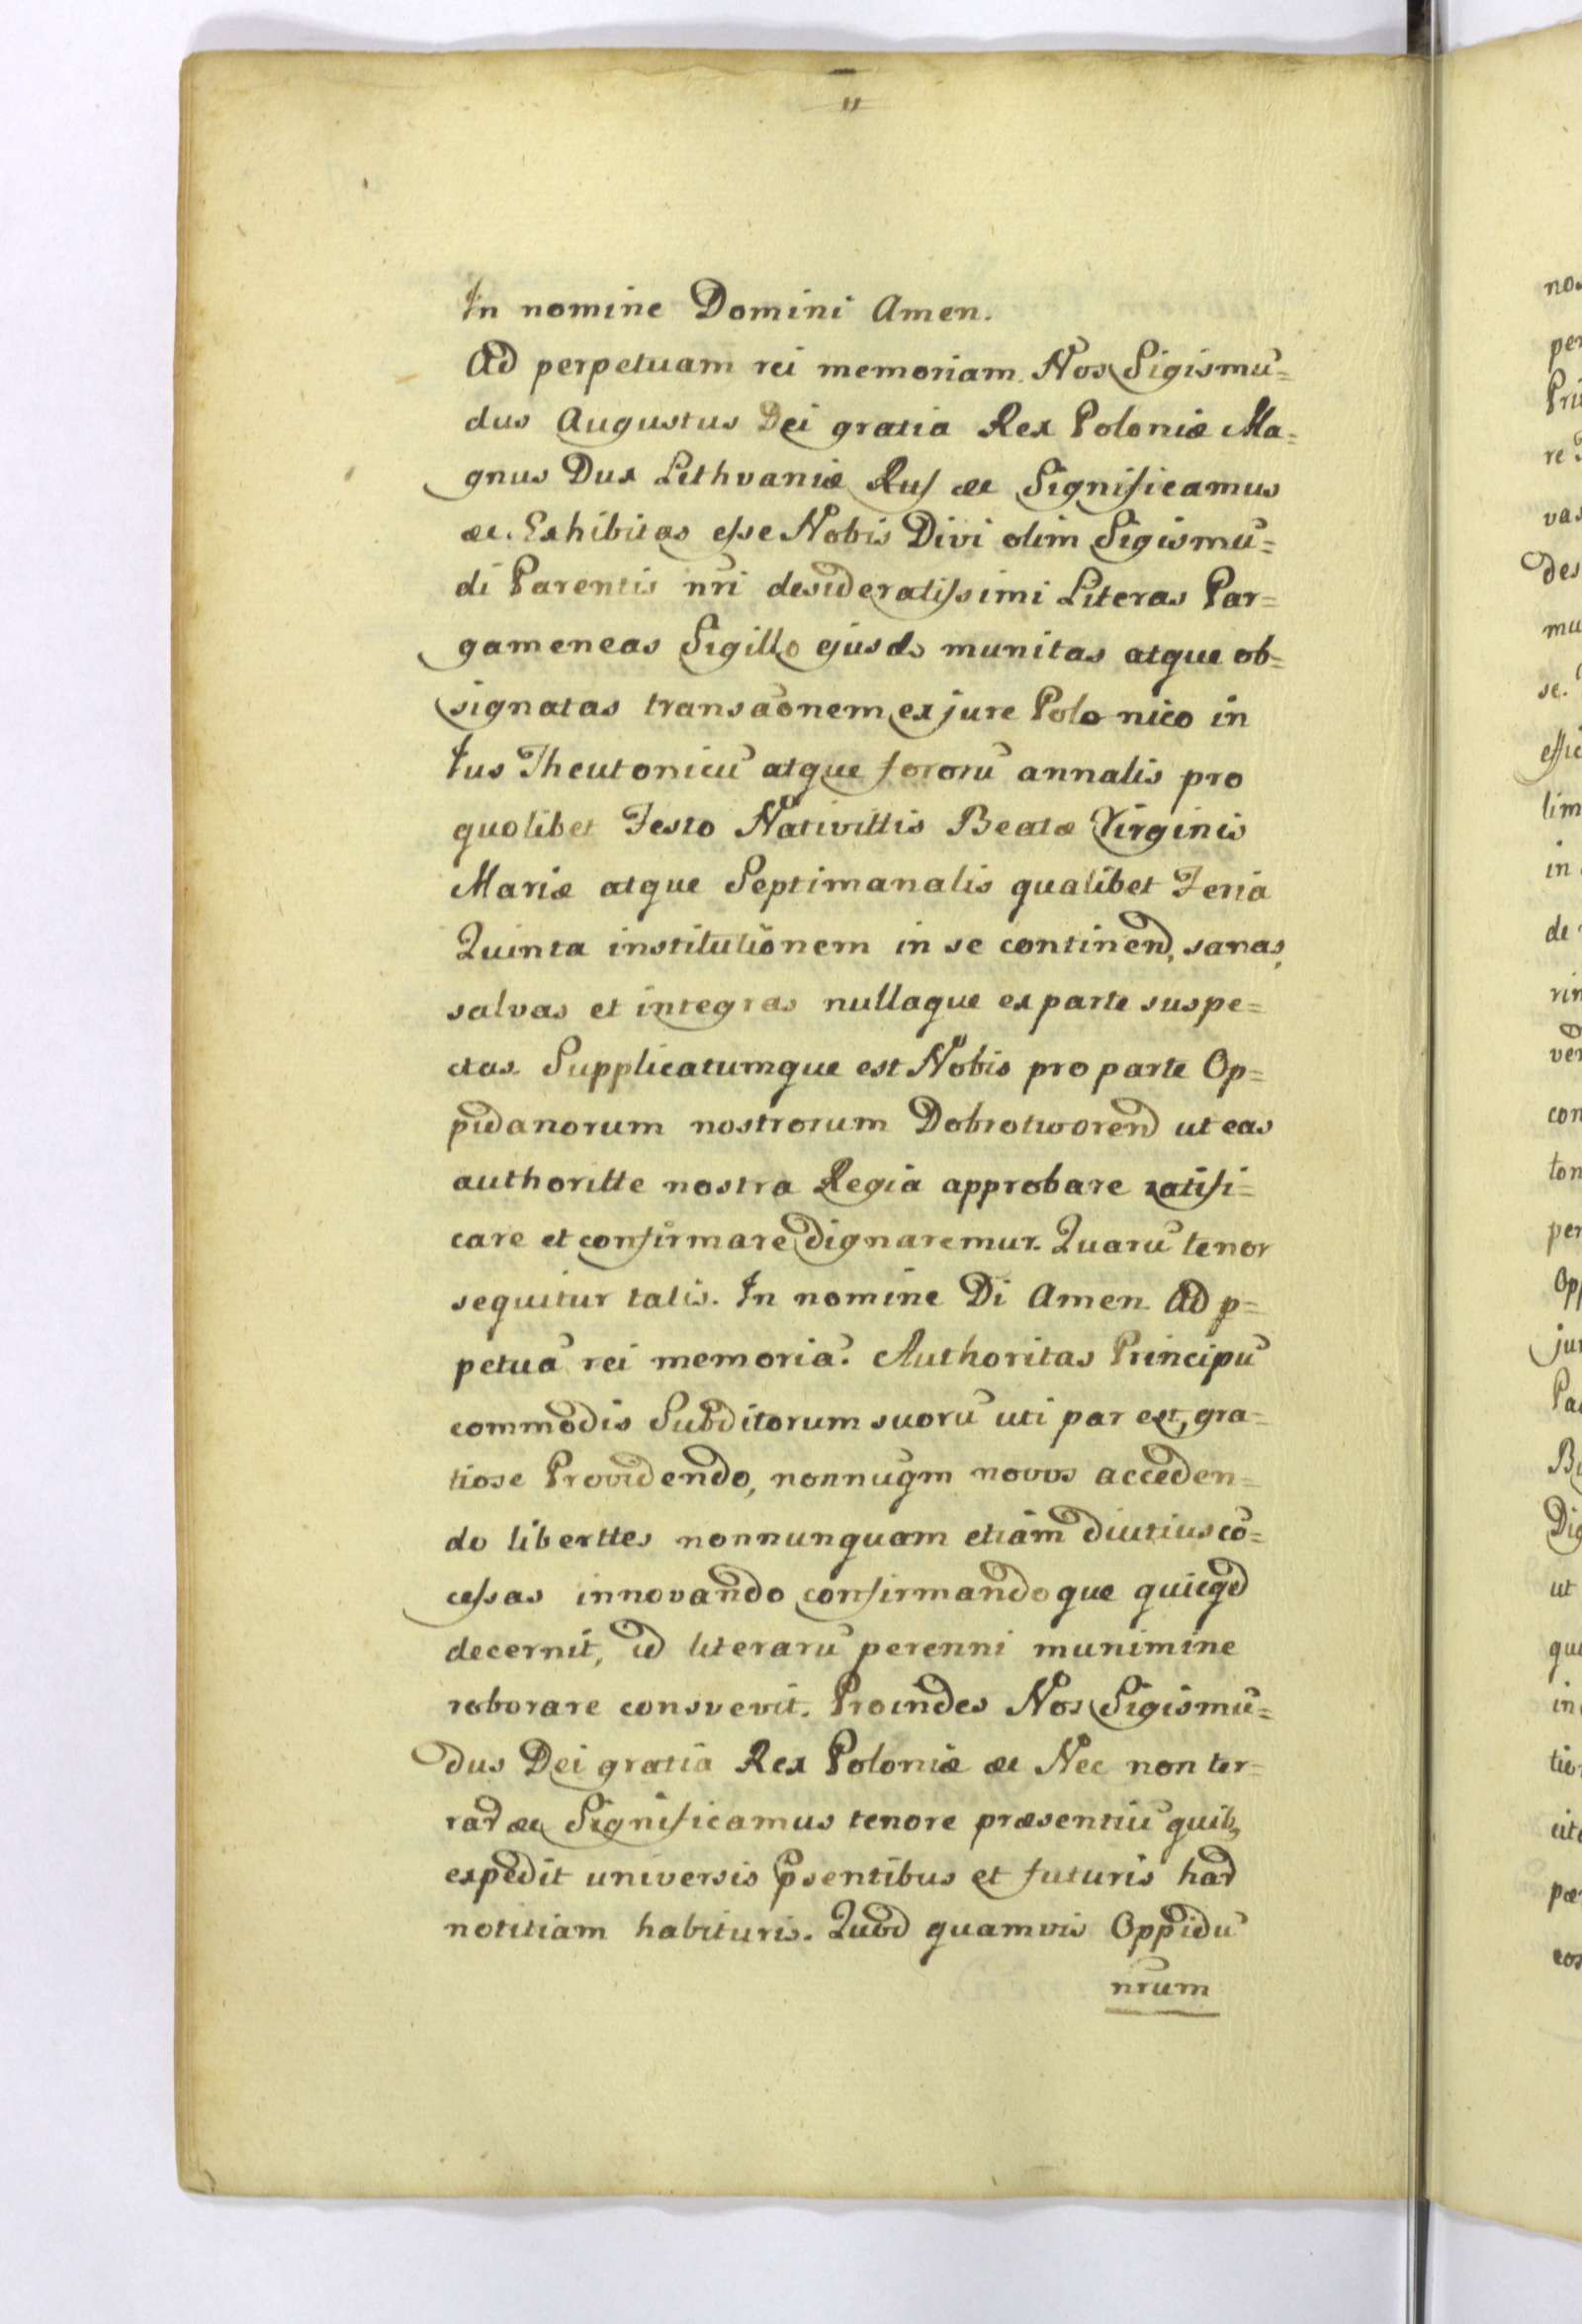 In nomine Domini Amen.
Ad perpetuam rei memoriam. Nos Sigismū=
dus Augustus Dei gratia Rex Poloniæ Ma=
gnus Dux Lithvaniæ Rus æc Significamus
æc. Exhibitas esse Nobis Divi olim Sigismū=
di Parentis nr̄i desideratissimi Literas Par=
gameneas Sigillo ejusd munitas atque ob=
signatas transāonem ex jure Polonico in
Jus Theutonicū atque fororū annalis pro
quolibet Festo Nativittis Beatæ Virginis
Mariæ atque Septimanalis qualibet Feria
Quinta institutionem in se continen̄d, sanas,
salvas et integras nullaque ex parte suspe=
ctas. Supplicatumque est Nobis pro parte Op=
pidanorum nostrorum Dobrotworen̄d ut eas
authoritte nostra Regia approbare ratifi=
care et confirmare dignaremur. Quarū tenor
sequitur talis. In nomine Di Amen. Ad p=
petuā rei memoriā. Authoritas Principū
commodis Subditorum suorū uti par est, gra=
tiose Providendo, nonnuqm novas acceden=
do liberttes nonnunquam etiam diutius cō=
cessas innovando confirmandoque quicqd
decernit, id literarū perenni munimine
roborare consvevit. Proindes Nos Sigismū=
dus Dei gratia Rex Poloniæ æc Nec non ter=
rar æc Significamus tenore præsentiū quib,
expedit universis p̄sentibus et futuris har
notitiam habituris. Quod quamvis Oppidū
nr̄um